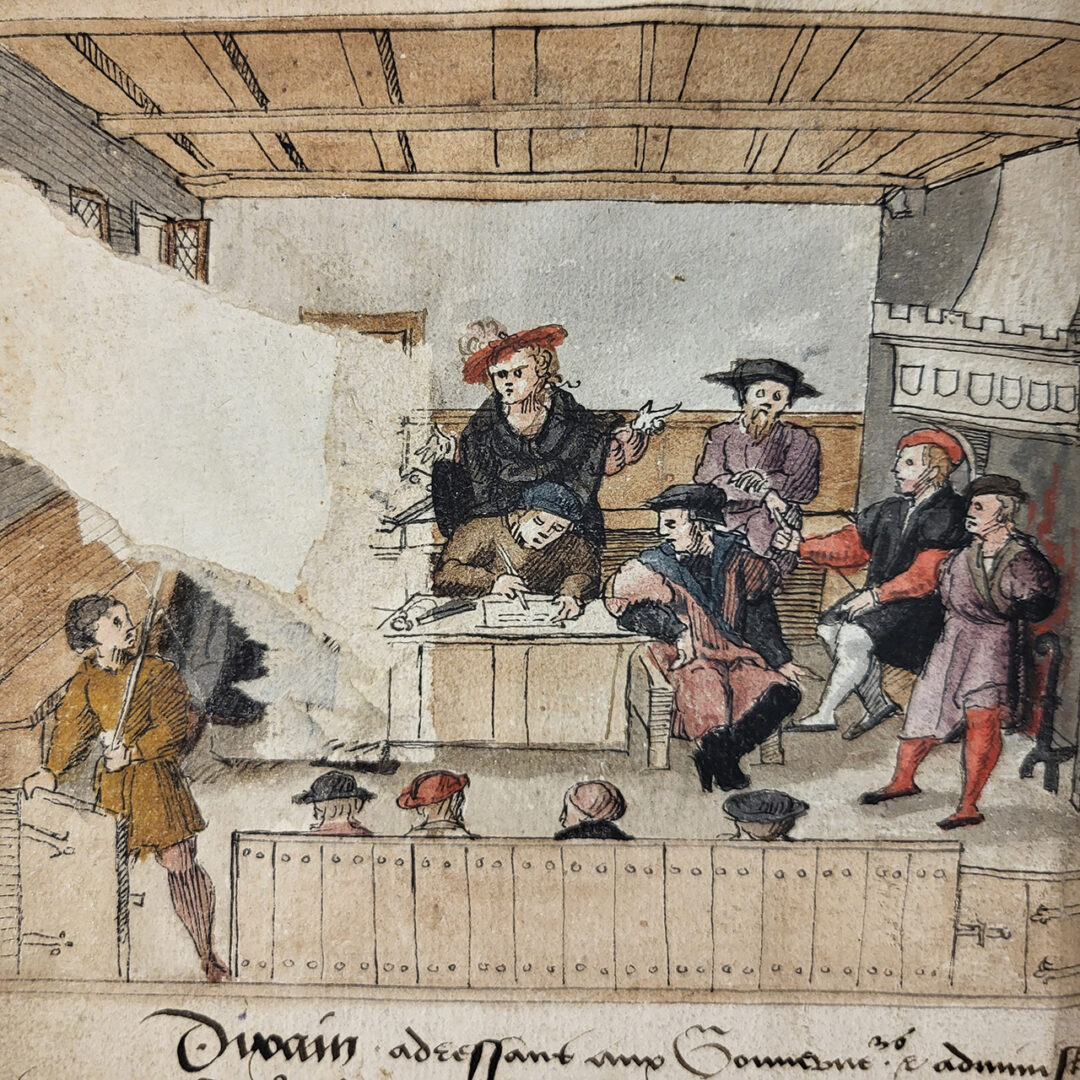 Dixain adressant aux Gouverne^rs & administ